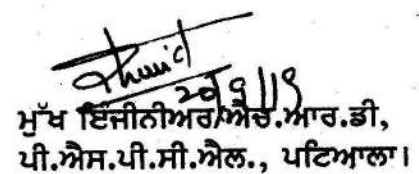 ਮੁੱਖ ਇੰਜੀਨੀਅਰ/ਐਚ.ਆਰ.ਡੀ,
ਪੀ.ਐਸ.ਪੀ.ਸੀ.ਐਲ., ਪਟਿਆਲਾ।